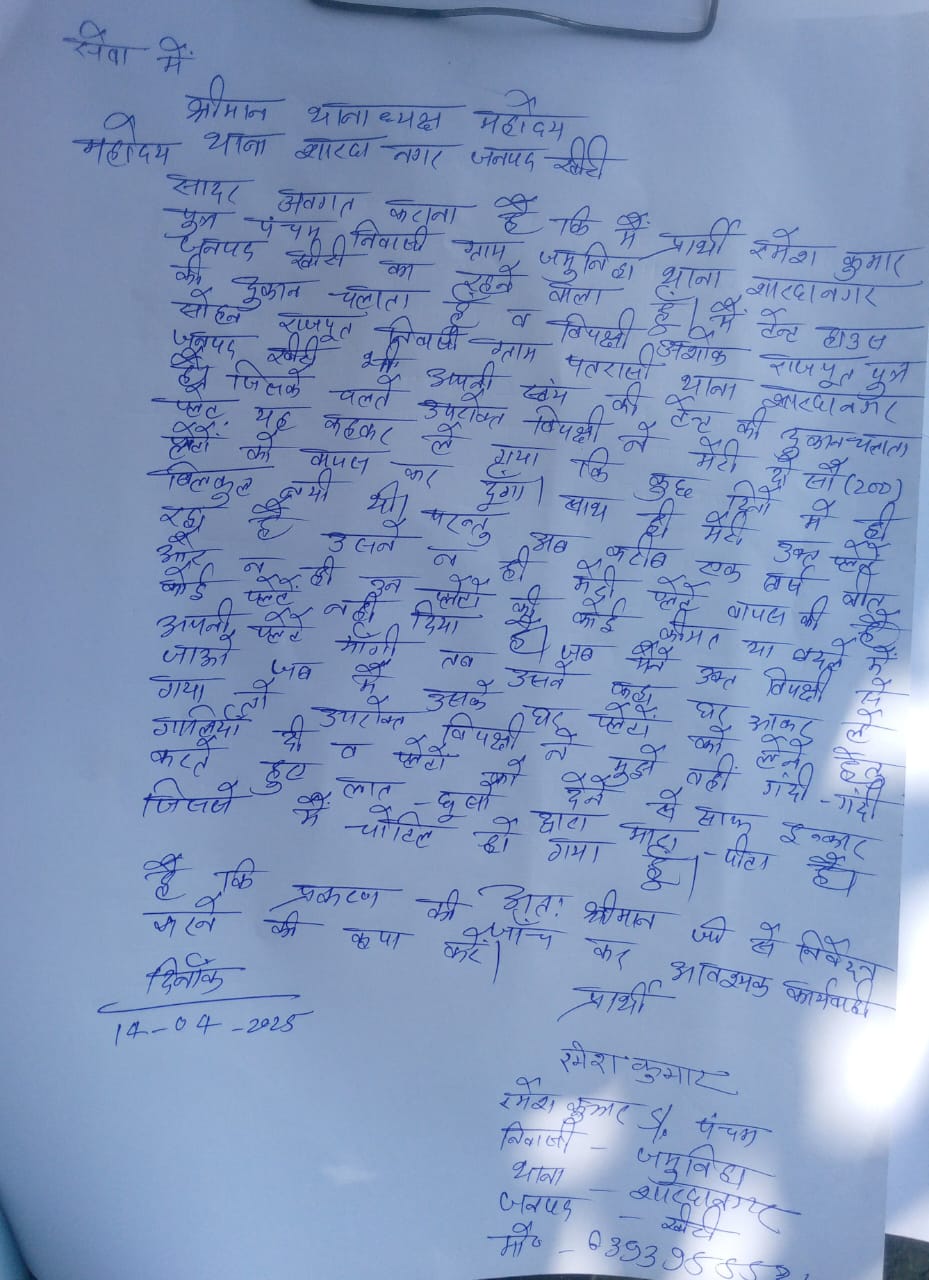 सेवा में
श्रीमान थानाध्यक्ष महोदय
महोदय थाना शारदा नगर जनपद खीरी
सादर अवगत कराना है कि मैं प्रार्थी रमेश कुमार
पुत्र पंचम निवासी ग्राम जमुनिहा थाना शारदानगर
जनपद खीरी का रहने वाला हूँ। मैं टेन्ट हाउस
की दुकान चलाता हूँ व विपक्षी अशोक राजपूत पुत्र
सोहन राजपूत निवासी ग्राम पतरासी थाना शारदानगर
जनपद खीरी भी अपनी स्वंय की टेन्ट की दुकान चलाता
है। जिसके चलते उपरोक्त विपक्षी ने मेरी दो सौ (200)
प्लेटें यह कहकर ले गया कि कुछ दिनों में ही
प्लेटों को वापस कर दूँगा। साथ ही मेरी उक्त प्लेटें
बिलकुल नयी थी। परन्तु अब करीब एक वर्ष बीत
रहा है उसने न ही मेरी प्लेटें वापस की है
और न ही उन प्लेटों की कोई कीमत या बदले में
कोई प्लेटें नही दिया है। जब मैंने उक्त विपक्षी से
अपनी प्लेटें माँगी तब उसने कहा घर आकर ले
जाओ जब मैं उसके घर प्लेटों को लेने हेतु
गया तो उपरोक्त विपक्षी ने मुझे वहीं गंदी-गंदी
गालियाँ दी व प्लेटों को देने से साफ इन्कार
करते हुए लात-घूसो द्वारा मारा-पीटा है।
जिससे मैं चोटिल हो गया हूँ।
अतः श्रीमान जी से निवेदन
है कि प्रकरण की जाँच कर आवश्यक कार्यवाही
करने की कृपा करें।
दिनाँक
14-04-2025
प्रार्थी
रमेश कुमार
रमेश कुमार S/o पंचम
निवासी - जमुनिहा
थाना - शारदानगर
जनपद - खीरी
मो०